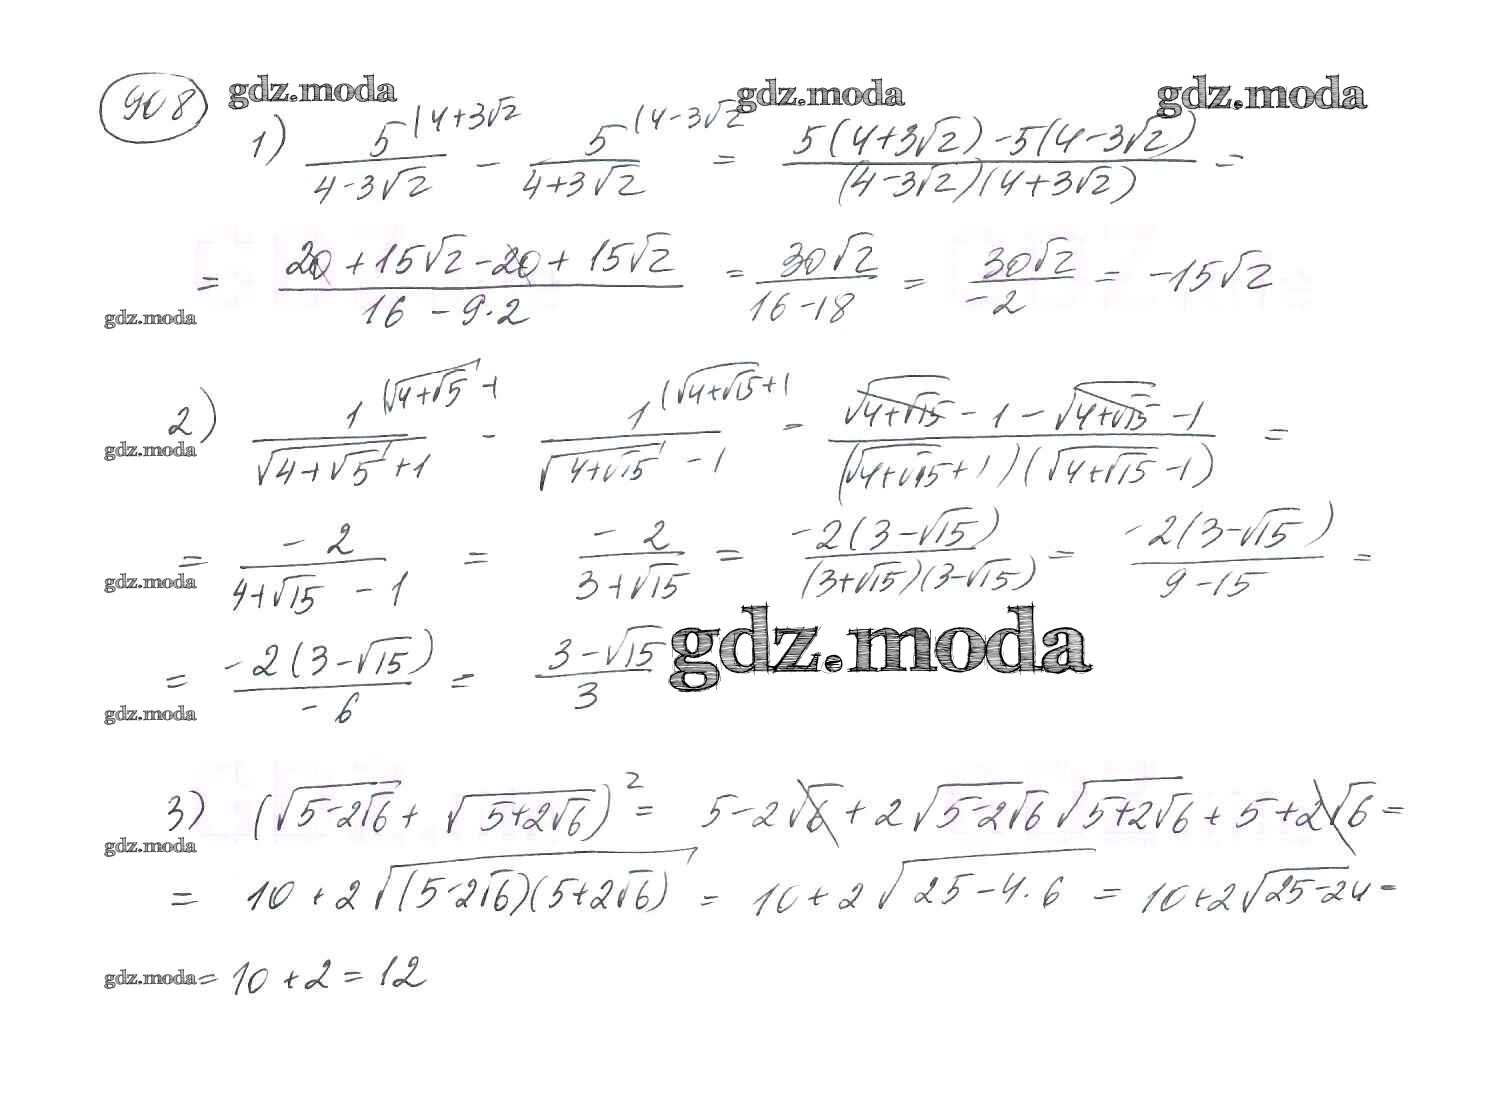 908 gdz.moda gdz.moda gdz.moda
1) 5(4+3√2 / 4-3√2 - 5(4-3√2 / 4+3√2 = 5(4+3√2)-5(4-3√2) / (4-3√2)(4+3√2) =
= 20+15√2-20+15√2 / 16-9·2 = 30√2 / 16-18 = 30√2 / -2 = -15√2
gdz.moda
2) 1(√(4+√5)-1 / √(4+√5)+1 - 1(√(4+√15)+1 / √(4+√15)-1 = √(4+√15)-1-√(4+√15)-1 / (√(4+√15)+1)(√(4+√15)-1) =
gdz.moda
= -2 / 4+√15-1 = -2 / 3+√15 = -2(3-√15) / (3+√15)(3-√15) = -2(3-√15) / 9-15 =
gdz.moda
= -2(3-√15) / -6 = 3-√15 / 3 gdz.moda
gdz.moda
3) (√(5-2√6)+√(5+2√6))² = 5-2√6+2√(5-2√6)√(5+2√6)+5+2√6 =
gdz.moda
= 10+2√((5-2√6)(5+2√6)) = 10+2√(25-4·6) = 10+2√(25-24) =
gdz.moda = 10+2=12